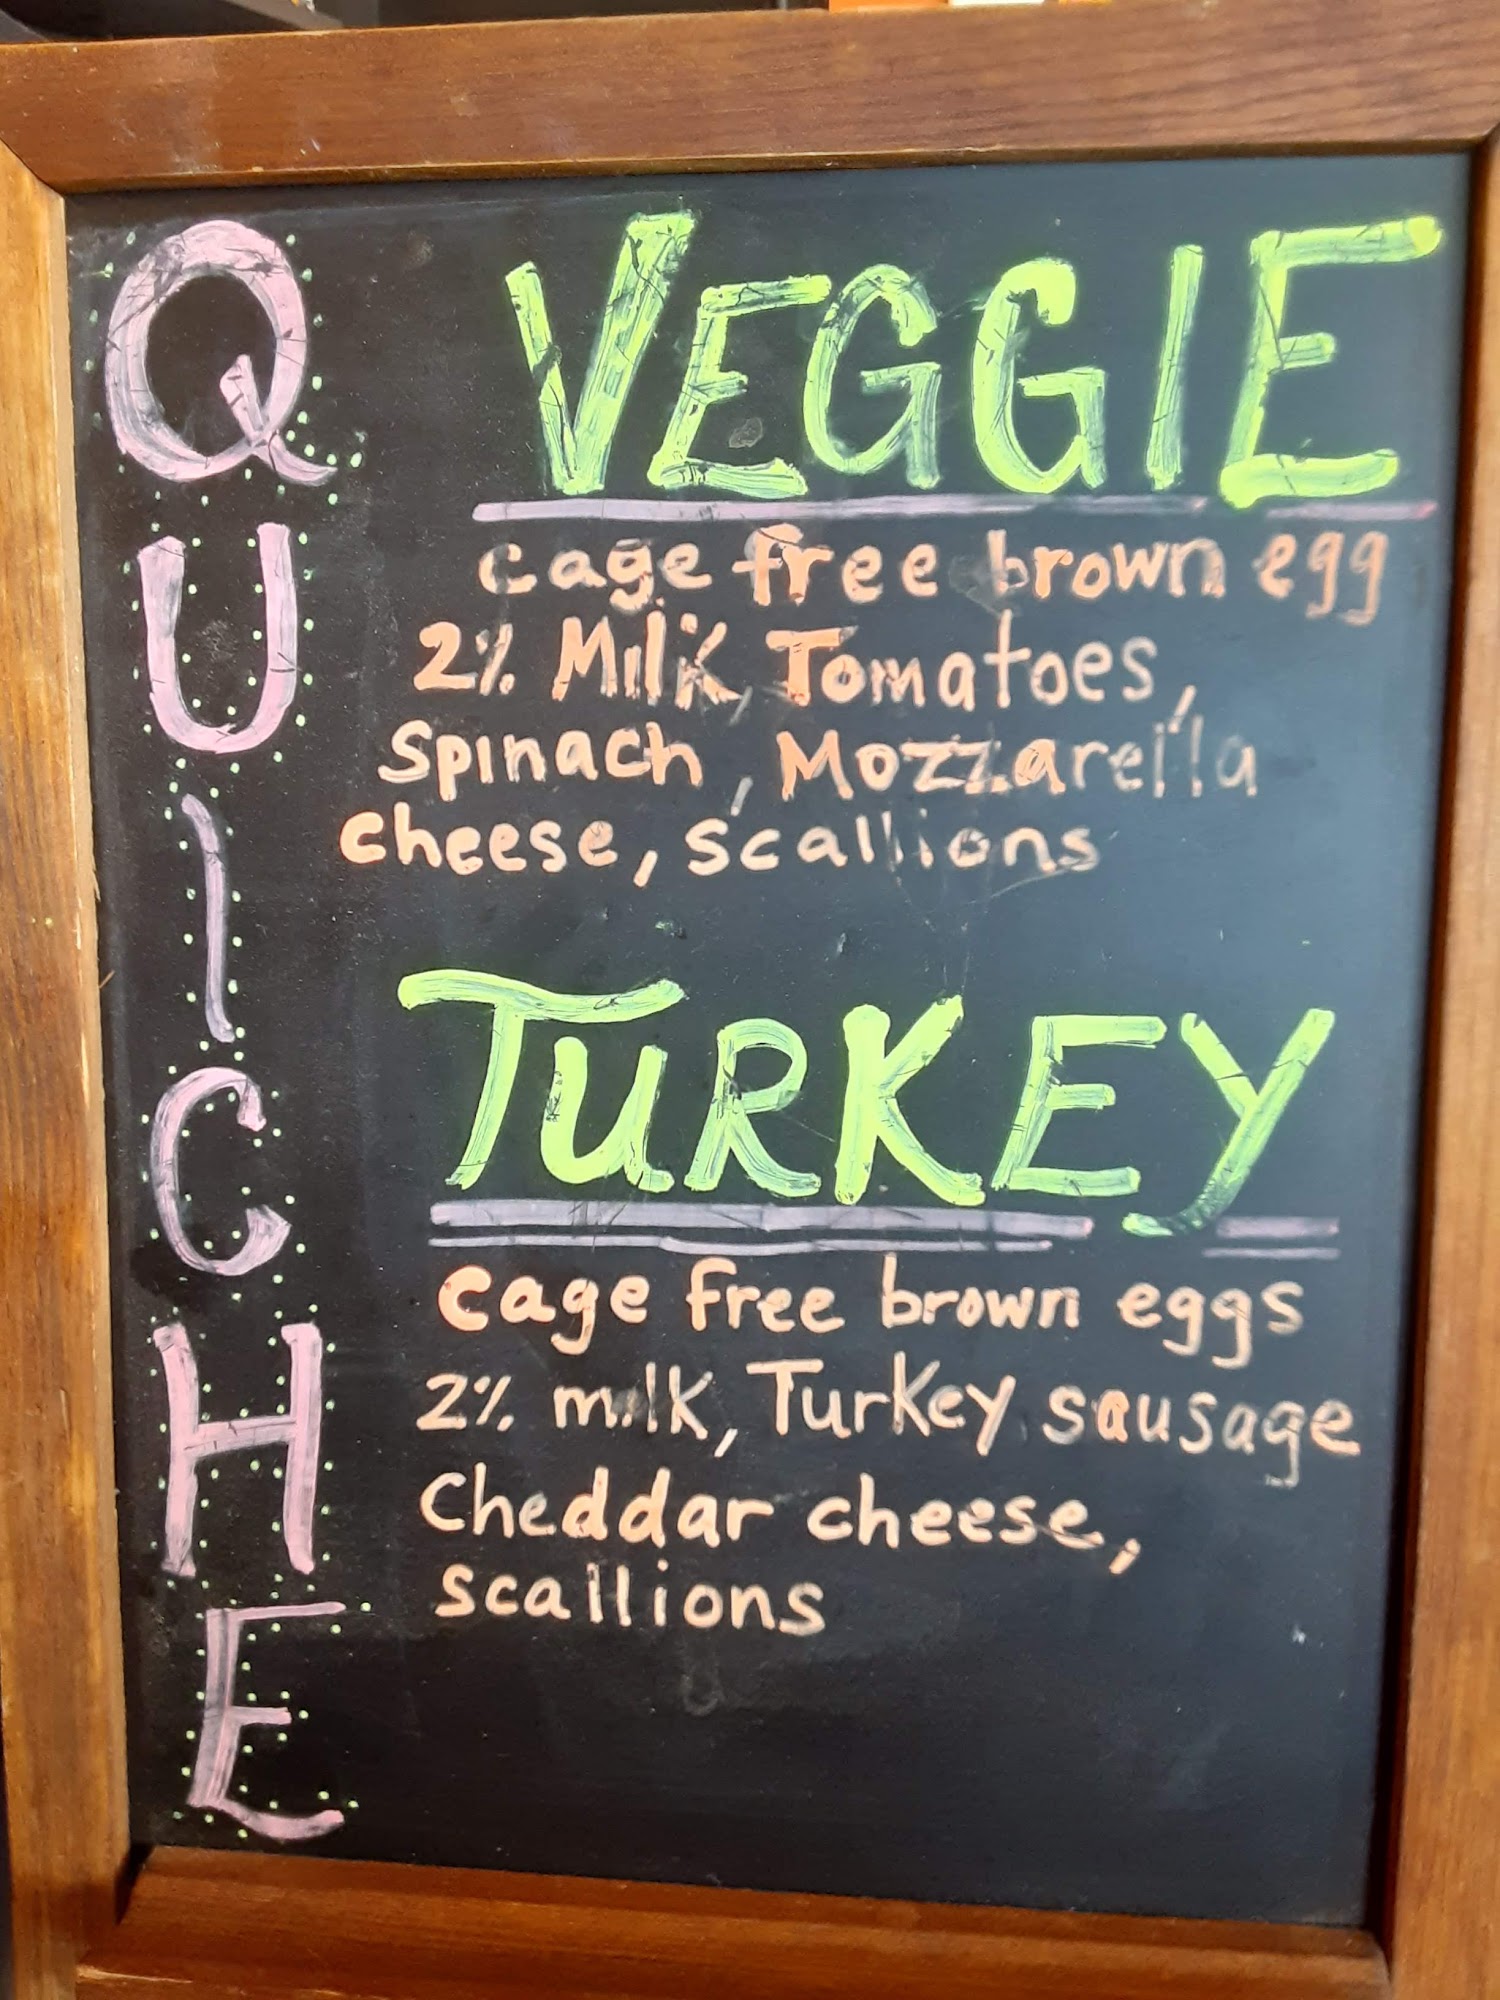 QUICHE
VEGGIE
cage free brown egg
2% Milk, Tomatoes,
Spinach, Mozzarella
cheese, scallions
TURKEY
cage free brown eggs
2% milk, Turkey sausage
Cheddar cheese,
scallions